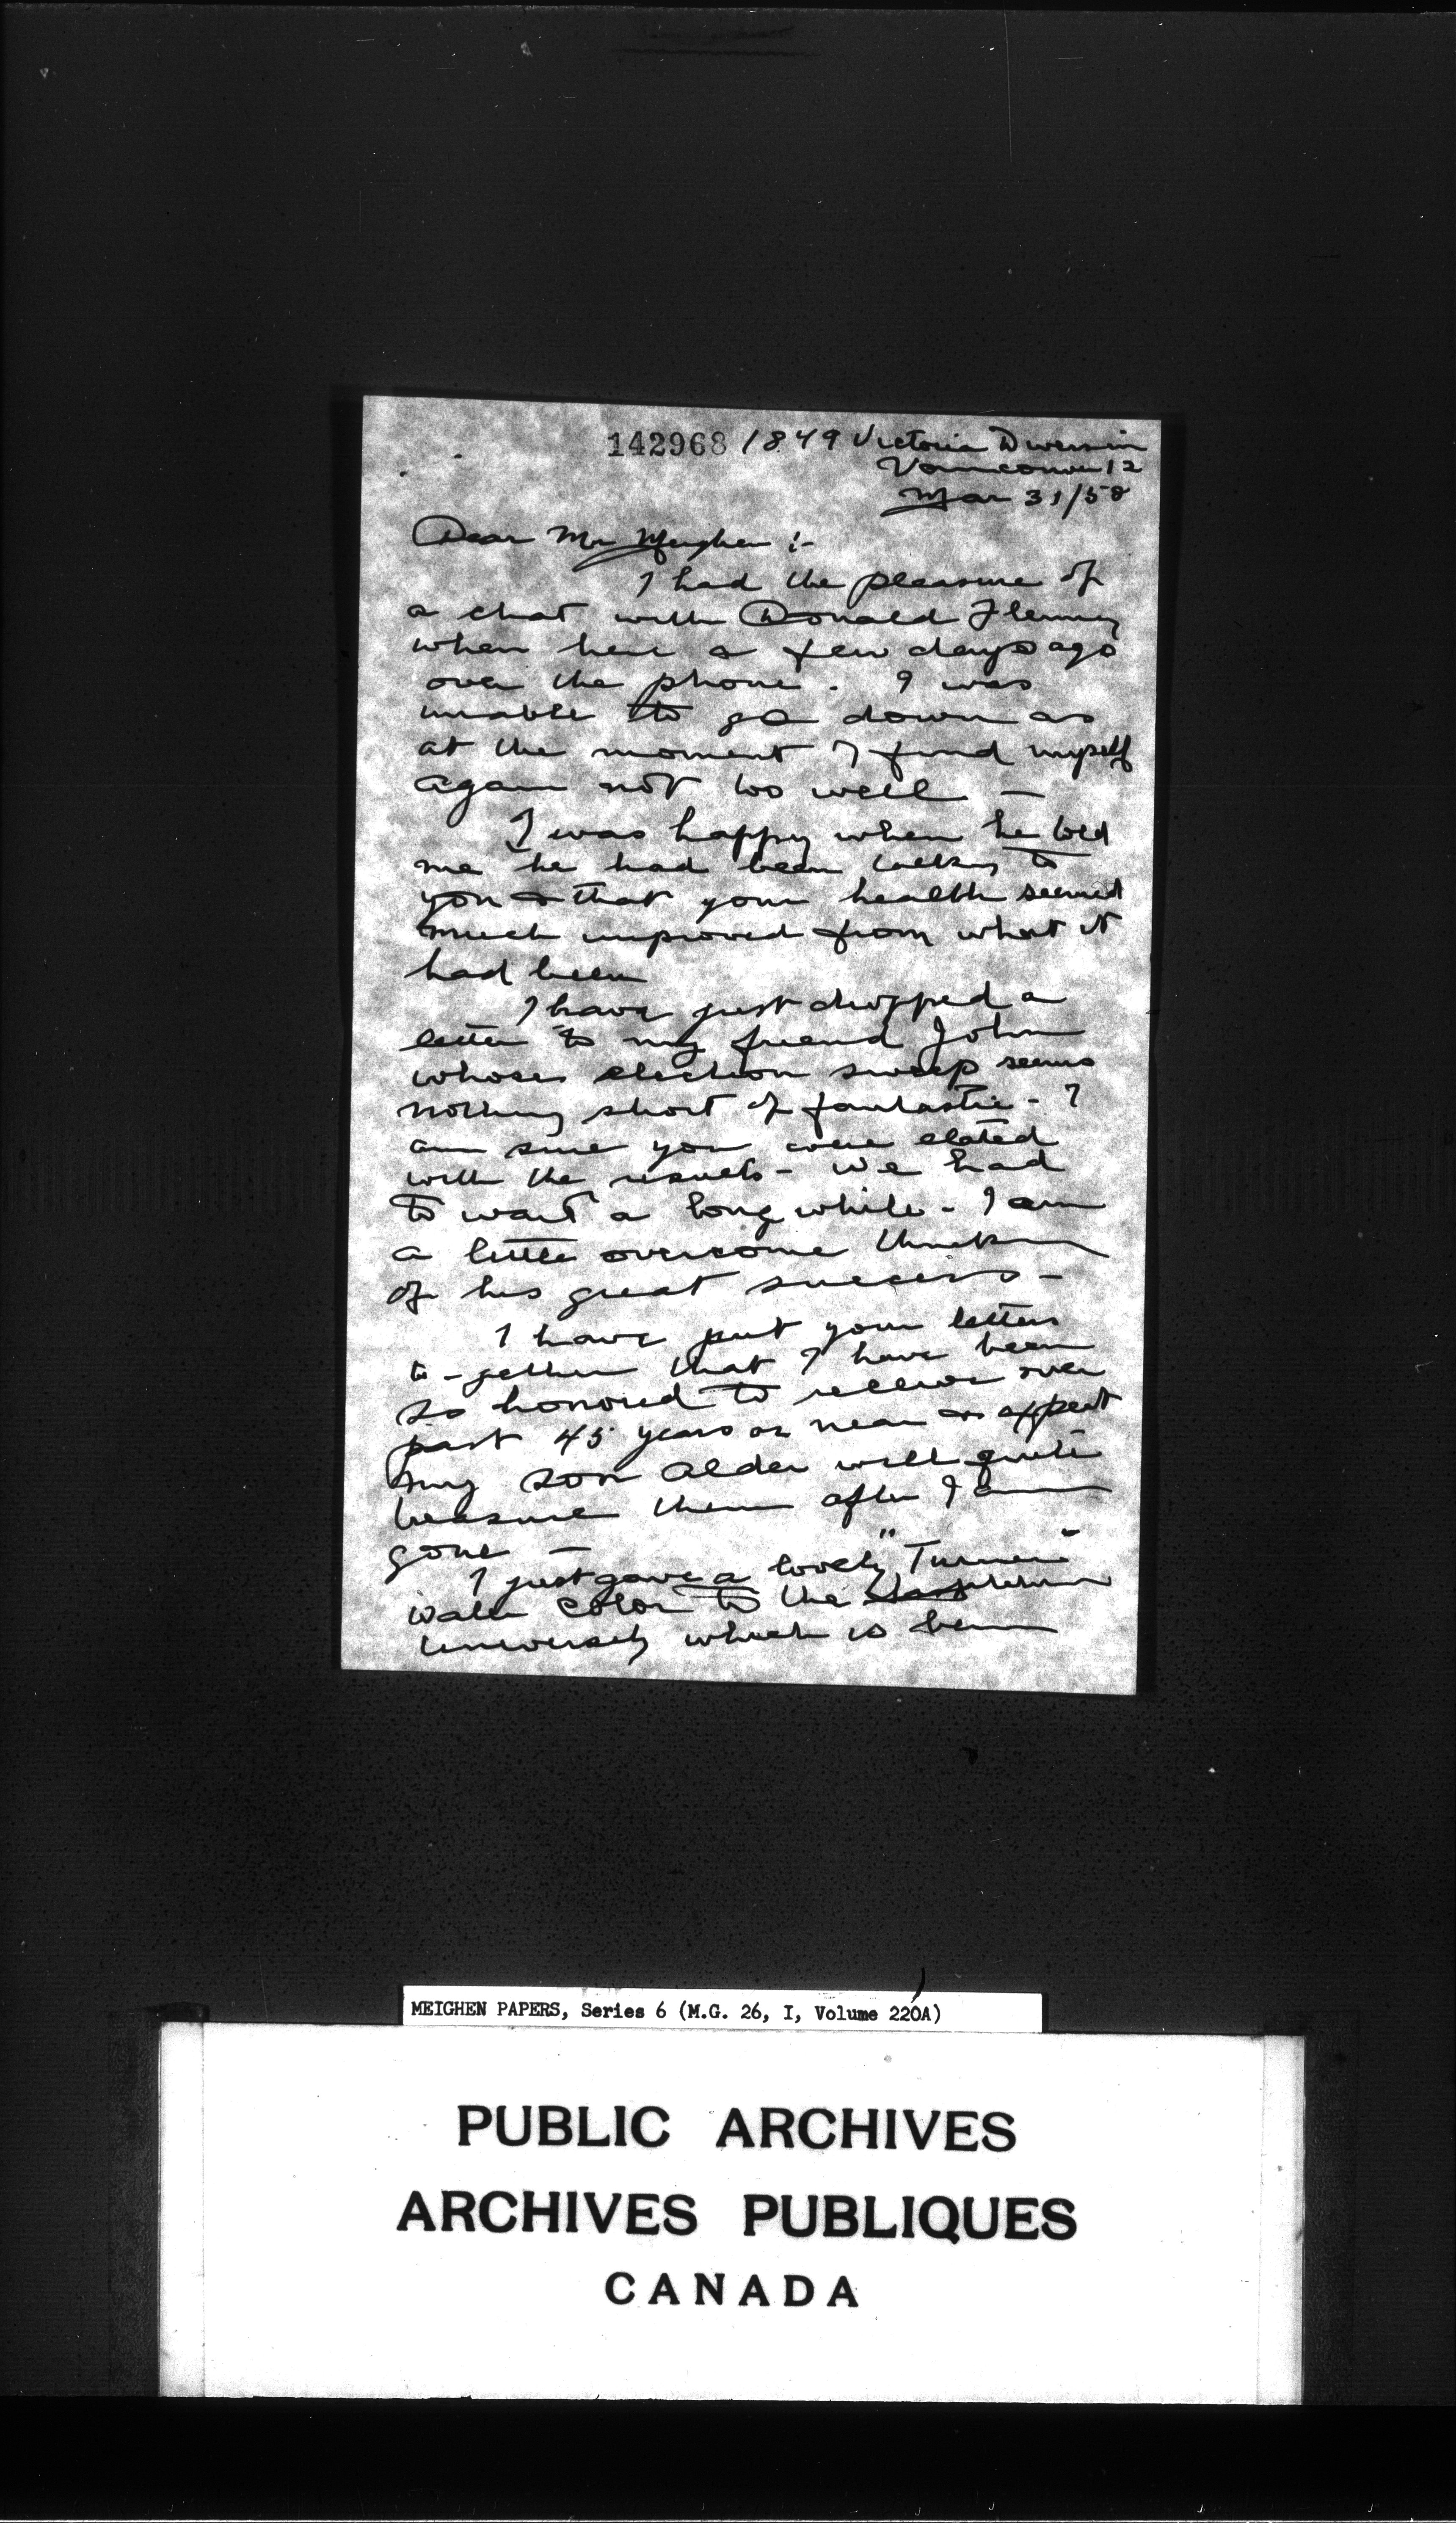 142968 1849 Victoria Diversion
Vancouver 12
Mar 31/58
Dear Mr Meighen :-
I had the pleasure of
a chat with Donald Fleming
when here a few days ago
over the phone. I was
unable to go down as
at the moment I find myself
again not too well —
I was happy when he told
me he had been talking to
you & that your health seemed
much improved from what it
had been
I have just dropped a
letter to my friend John
whose election sweep seems
nothing short of fantastic - I
am sure you were elated
with the results - We had
to wait a long while - I am
a little overcome thinking
of his great success —
I have put your letters
to-gether that I have been
so honored to receive over
past 45 years or near & expect
my son Alder will quite
treasure them after I am
gone —
I just gave a lovely "Turner"
water color to the
University which is being
MEIGHEN PAPERS, Series 6 (M.G. 26, I, Volume 220A)
PUBLIC ARCHIVES
ARCHIVES PUBLIQUES
CANADA